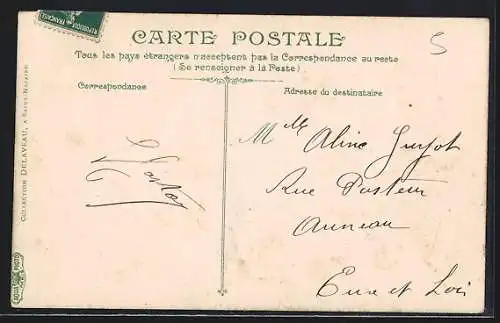 REPUBLIQUE FRANÇAISE
CARTE POSTALE
5
Tous les pays étrangers n'acceptent pas la Correspondance au recto
(Se renseigner à la Poste)
Correspondance
Adresse du destinataire
COLLECTION DELAVEAU, A SAINT-NAZAIRE
Mlle Aline Guyot
Rue Pasteur
Auneau
Eure et Loir